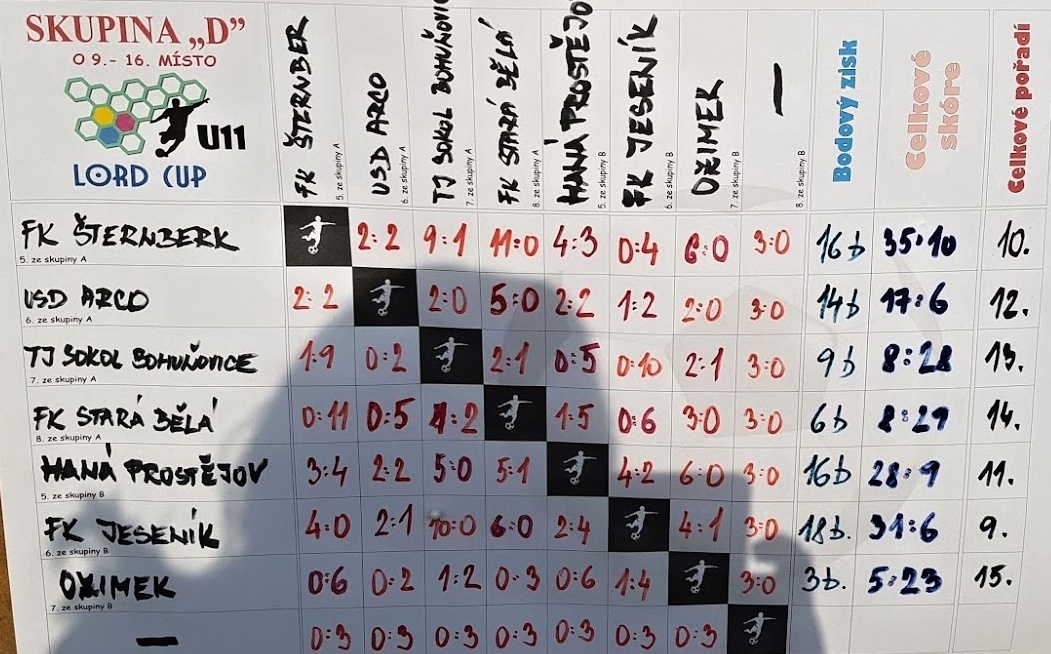 SKUPINA „D”
O 9.- 16. MÍSTO
U11
LORD CUP
FK ŠTERNBER 5. ze skupiny A
USD ARCO 6. ze skupiny A
TJ SOKOL BOHUŇOVIC 7. ze skupiny A
FK STARÁ BĚLÁ 8. ze skupiny A
HANÁ PROSTĚJO 5. ze skupiny B
FK JESENÍK 6. ze skupiny B
OŽIMEK 7. ze skupiny B
— 8. ze skupiny B
Bodový zisk
Celkové skóre
Celkové pořadí
FK ŠTERNBERK 2:2 9:1 11:0 4:3 0:4 6:0 3:0 16b 35:10 10.
5. ze skupiny A
USD ARCO 2:2 2:0 5:0 2:2 1:2 2:0 3:0 14b 17:6 12.
6. ze skupiny A
TJ SOKOL BOHUŇOVICE 1:9 0:2 2:1 0:5 0:10 2:1 3:0 9b 8:28 13.
7. ze skupiny A
FK STARÁ BĚLÁ 0:11 0:5 1:2 1:5 0:6 3:0 3:0 6b 8:29 14.
8. ze skupiny A
HANÁ PROSTĚJOV 3:4 2:2 5:0 5:1 4:2 6:0 3:0 16b 28:9 11.
5. ze skupiny B
FK JESENÍK 4:0 2:1 10:0 6:0 2:4 4:1 3:0 18b. 31:6 9.
6. ze skupiny B
OŽIMEK 0:6 0:2 1:2 0:3 0:6 1:4 3:0 3b. 5:23 15.
7. ze skupiny B
— 0:3 0:3 0:3 0:3 0:3 0:3 0:3